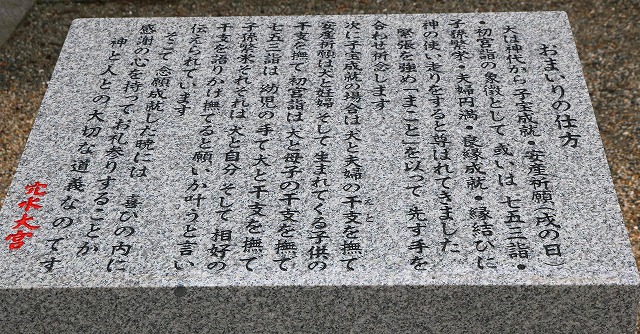 おまいりの仕方
犬は神代から子宝成就・安産祈願(戌の日)
・初宮詣の象徴として 或いは 七五三詣・
子孫繁栄・夫婦円満・良縁成就・縁結びに
神の使い走りをすると尊ばれてきました
緊張を強め「まこと」を以って 先ず手を
合わせ祈念します
次に子宝成就の場合は犬と夫婦の干支を撫で
えと
安産祈願は犬と妊婦そして生まれてくる子供の
干支を撫で 初宮詣は犬と母子の干支を撫で
七五三詣は 幼児の手で犬と干支を撫で
子孫繁栄それぞれは 犬と自分 そして 相好の
干支を語りかけ撫でると願いが叶うと言い
伝えられています
そこで念願成就した暁には 喜びの内に
感謝の心を持ってお礼参りすることが
神と人との大切な道義なのです
穴水大宮